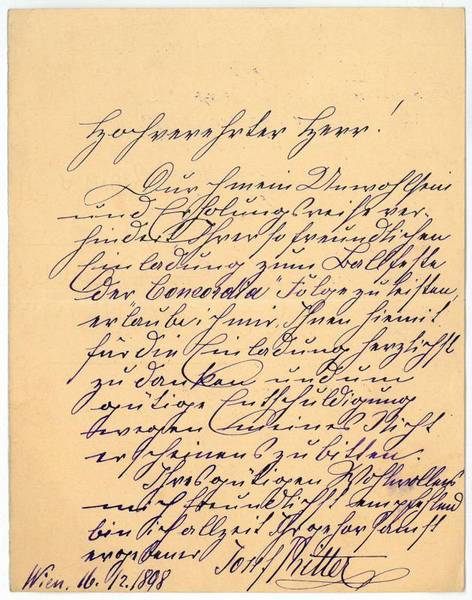 Hochverehrter Herr!
Durch mein Unwohlsein
und Erholungsreise ver-
hindert Ihrer so freundlichen
Einladung zum Ballfeste
der "Concordia" Folge zu leisten,
erlaube ich mir, Ihnen hiemit
für die Einladung herzlichst
zu danken und um
gütige Entschuldigung
wegen meines Nicht
erscheinens zu bitten.
Ihres gütigen Wohlwollens
mich freundlichst empfehlend
bin ich allzeit Ihr gehorsamst
ergebener Josef Ritter
Wien, 16. 12. 1898